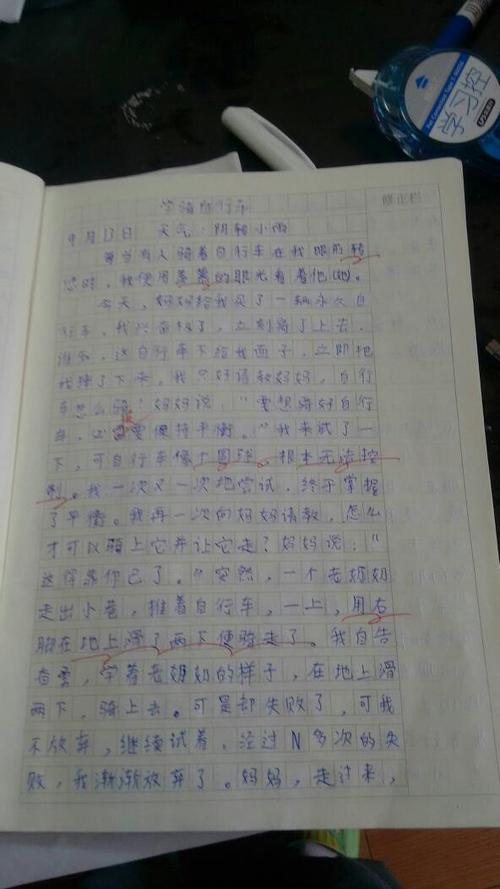 学骑自行车
修正栏
9月13日 天气:阴转小雨
每当有人骑着自行车在我眼前转
悠时,我便用羡慕的眼光看着他(她)。
今天,妈妈给我买了一辆永久自
行车,我兴奋极了,立刻骑了上去。
谁知,这自行车不给我面子,立即把
我摔了下来。我只好请教妈妈,自行
车怎么骑?妈妈说:“要想骑好自行
车,必须要保持平衡。”我来试了一
下,可自行车像个圆球,根本无法控
制。我一次又一次地尝试,终于掌握
了平衡。我再一次向妈妈请教,怎么
才可以骑上它并让它走?妈妈说:“
这得靠你己了。”突然,一个老奶奶
走出小巷,推着自行车,一上,用右
脚在地上滑了两下便骑走了。我自告
奋勇,学着老奶奶的样子,在地上滑
两下,骑上去。可是却失败了,可我
不放弃,继续试着,经过N多次的失
败,我渐渐放弃了。妈妈,走过来,
学习控